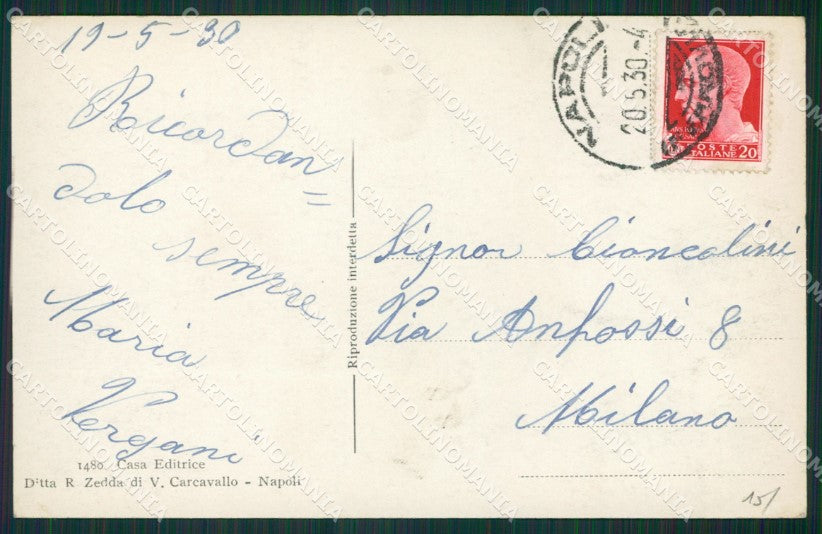 19-5-30
Ricordan=
dolo
sempre
Maria
Vergani
1480 Casa Editrice
Ditta R Zedda di V. Carcavallo - Napoli
Riproduzione interdetta
NAPOLI
20.5.30.-4
POSTE
ITALIANE 20
Signor Cioncolini
Via Anfossi 8
Milano
15/
CARTOLINOMANIA